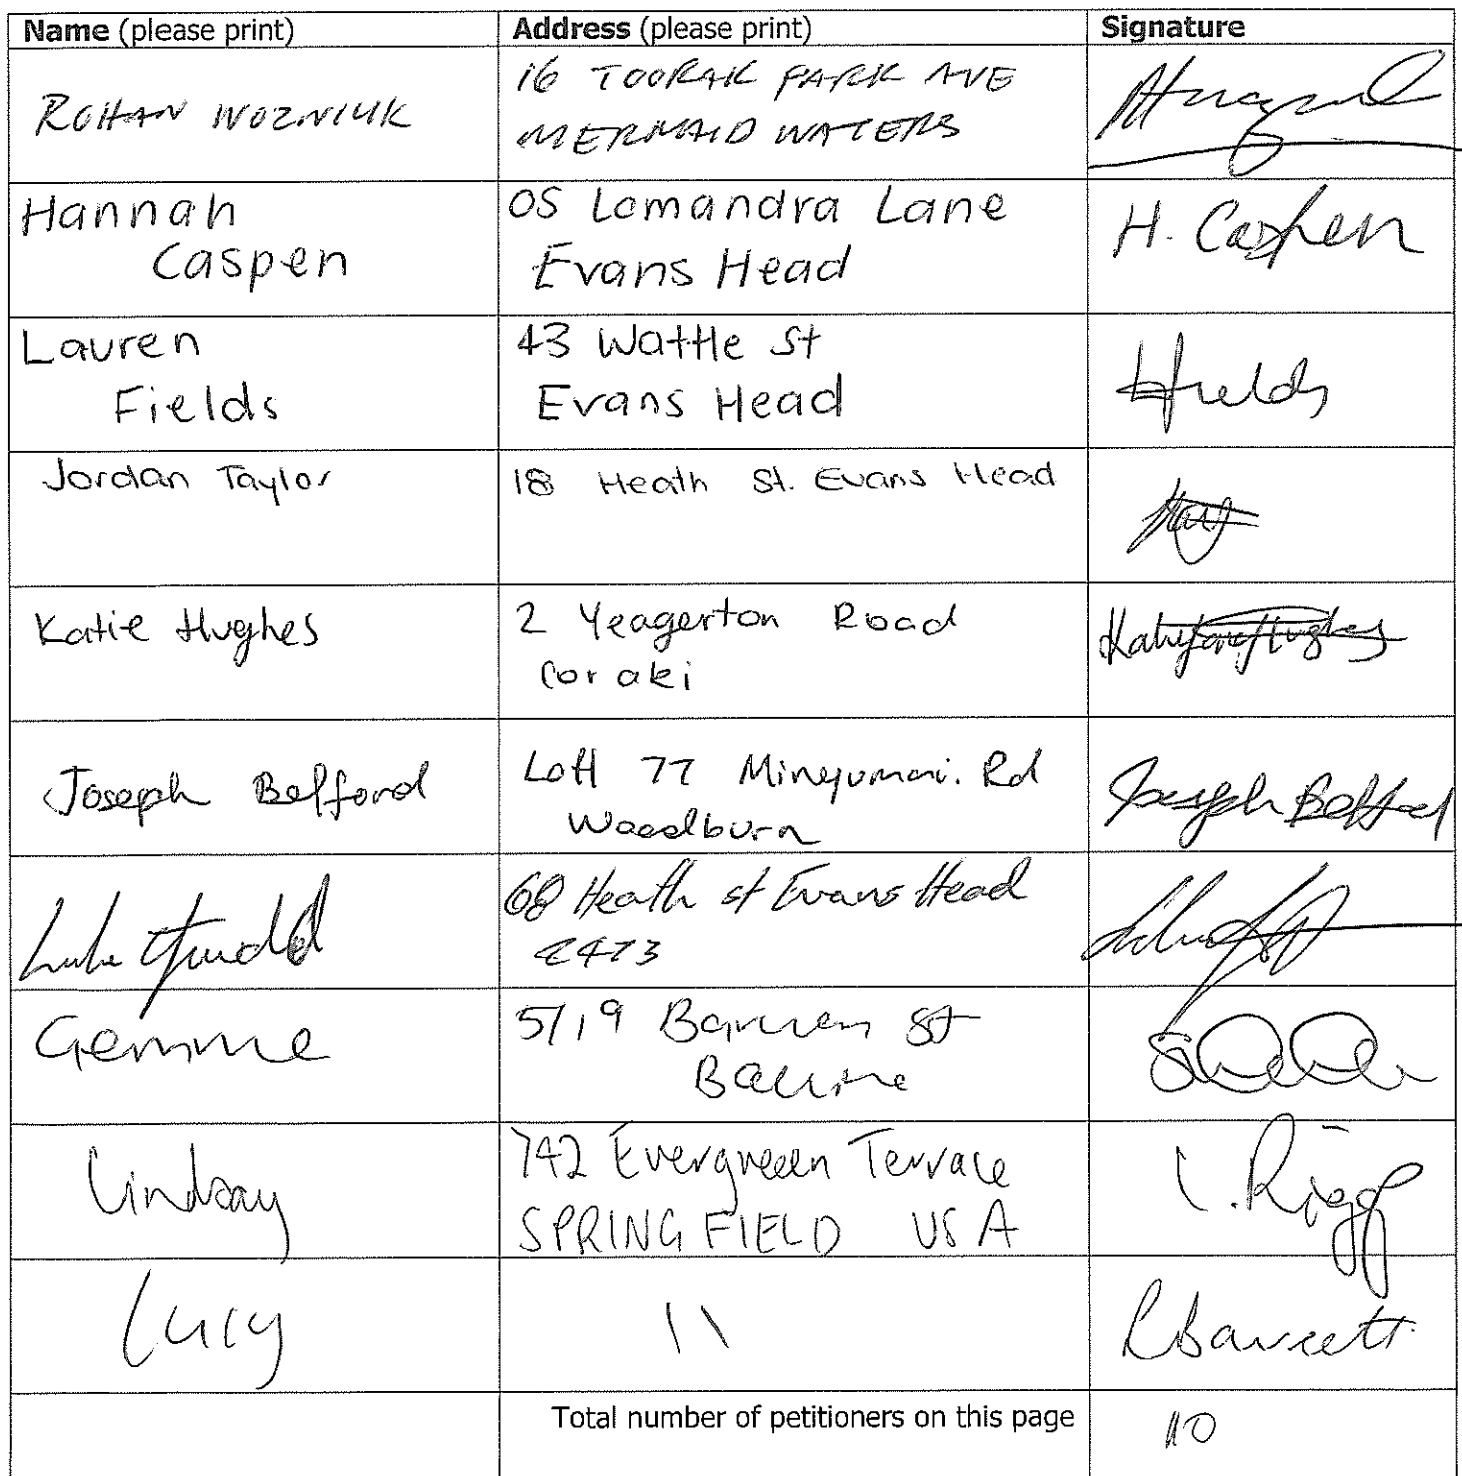 Name (please print) Address (please print) Signature
ROHAN WOZNIUK
16 TOORAK PARK AVE
MERMAID WATERS
Hannah
Caspen
05 Lomandra Lane
Evans Head
H. Caspen
Lauren
Fields
43 Wattle St
Evans Head
LFields
Jordan Taylor
18 Heath St. Evans Head
Katie Hughes
2 Yeagerton Road
Coraki
Joseph Belford
Lott 77 Rd
Woodburn
Joseph
Luke
68 Heath st Evans Head
2473
Gemma
5/19 St
Ballina
Lindsay
742 Evergreeen Terrace
SPRINGFIELD USA
L. Rigg
Lucy
\\
LBarrett
Total number of petitioners on this page
10